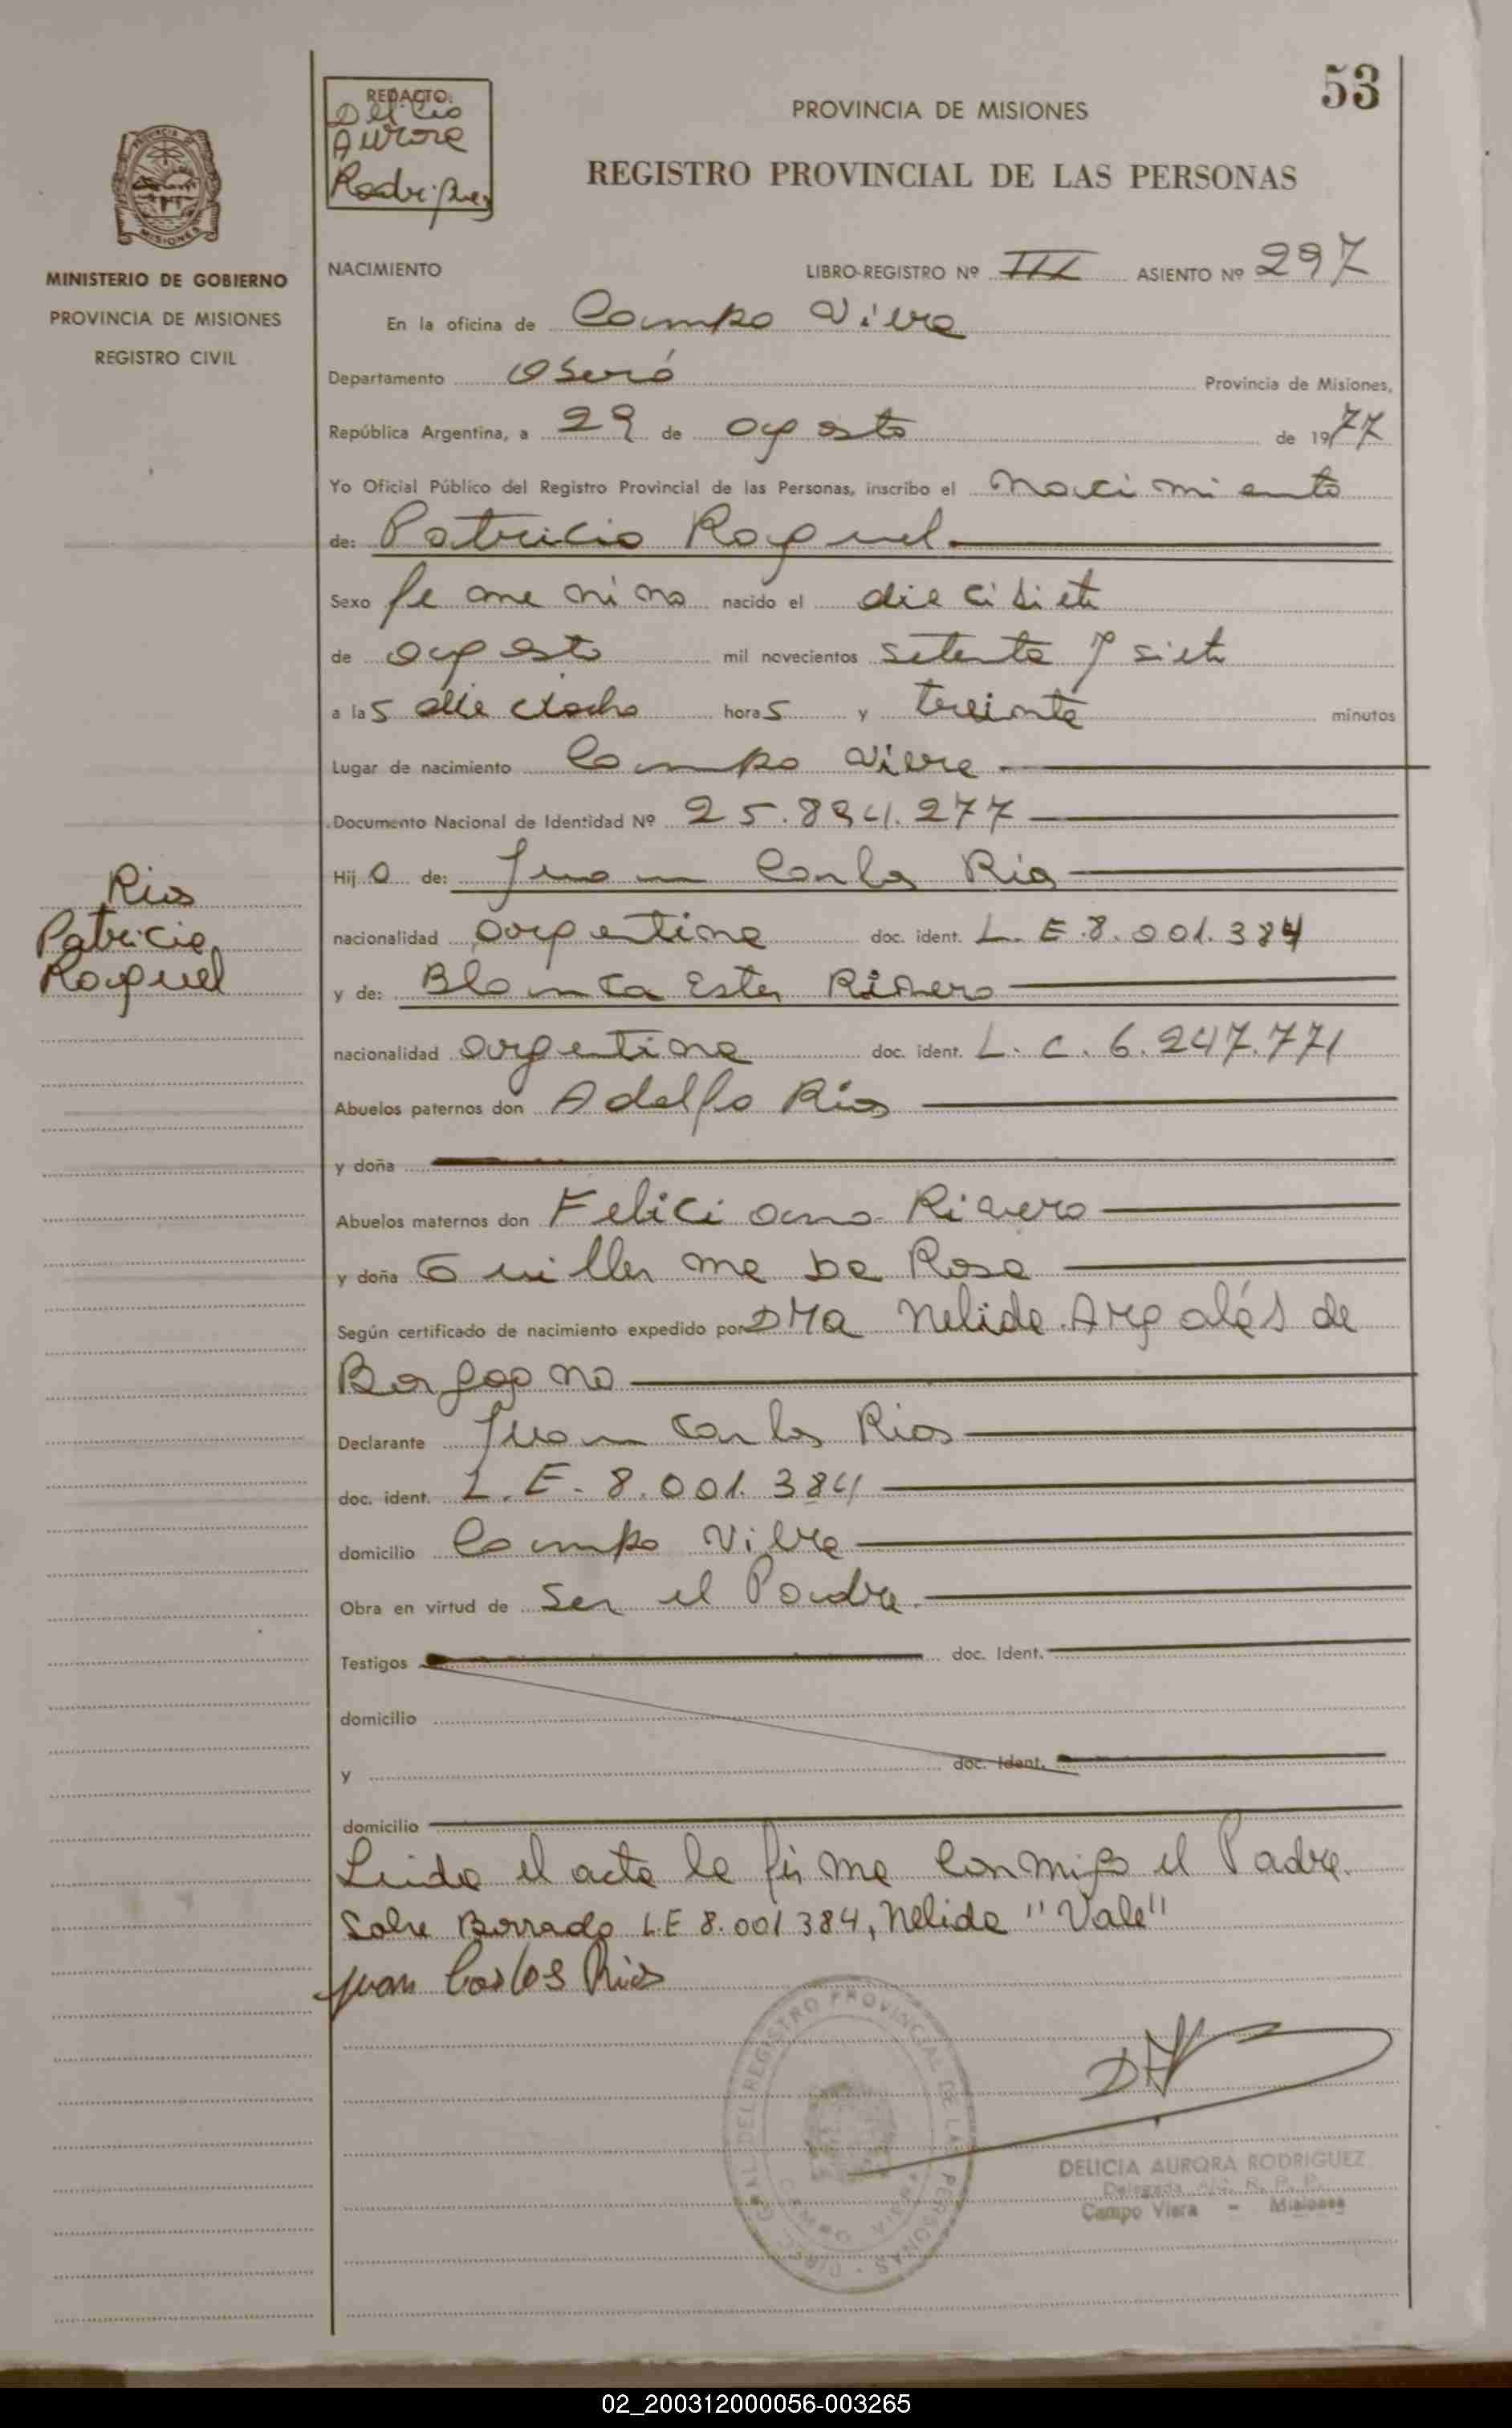 53
REDACTO:
Delicia
Aurora
Rodriguez
PROVINCIA DE MISIONES
REGISTRO PROVINCIAL DE LAS PERSONAS
MISIONES
MINISTERIO DE GOBIERNO
PROVINCIA DE MISIONES
REGISTRO CIVIL
NACIMIENTO LIBRO-REGISTRO Nº III ASIENTO Nº 297
En la oficina de Campo Viera
Departamento Oberá Provincia de Misiones,
República Argentina, a 29 de agosto de 1977
Yo Oficial Público del Registro Provincial de las Personas, inscribo el nacimiento
de: Patricia Raquel
Sexo femenino nacido el diecisiete
de agosto mil novecientos setenta y siete
a las dieciocho horas y treinta minutos
Lugar de nacimiento Campo Viera
Documento Nacional de Identidad Nº 25.894.277
Hija de: Juan Carlos Rios
nacionalidad argentina doc. ident. L.E. 8.001.384
y de: Blanca Ester Rivero
nacionalidad argentina doc. ident. L.C. 6.247.771
Abuelos paternos don Adolfo Rios
y doña
Abuelos maternos don Feliciano Rivero
y doña Guillerma Da Rosa
Según certificado de nacimiento expedido por Dra Nelida Argalés de
Borgogno
Declarante Juan Carlos Rios
doc. ident. L.E. 8.001.384
domicilio Campo Viera
Obra en virtud de Ser el Padre.
Testigos doc. Ident.
domicilio
y doc. Ident.
domicilio
Leida el acta la firma conmigo el Padre.
Sobre Borrado L.E 8.001384, Nelida "Vale"
Juan Carlos Rios
Rios
Patricia
Raquel
DIREC. GRAL. DEL REGISTRO PROVINCIAL DE LAS PERSONAS
CAMPO VIERA
DELICIA AURORA RODRIGUEZ
Delegada R. P. P.
Campo Viera - Misiones
02_200312000056-003265